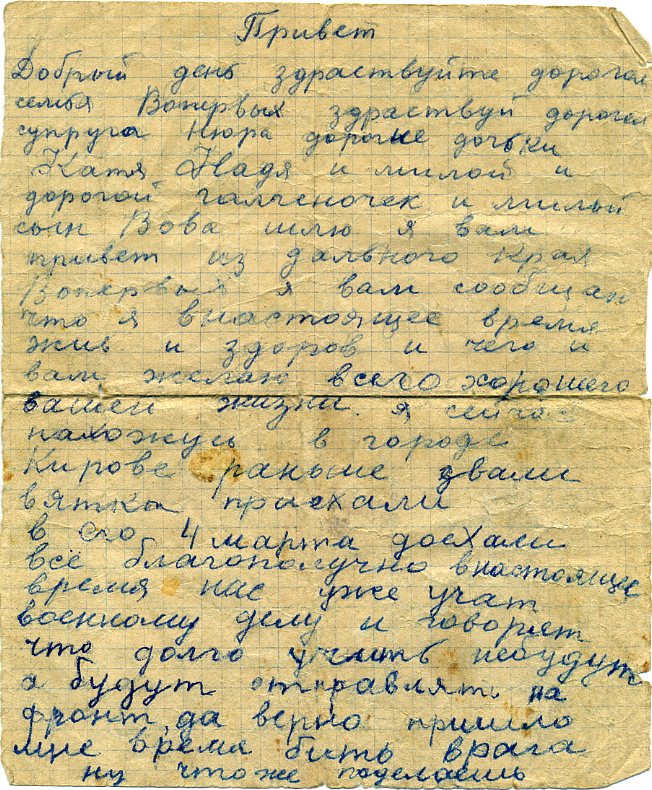 Привет
Добрый день здраствуйте дорогая
семья Вопервых здраствуй дорогая
супруга Нюра дорогие дочьки
Катя Надя и милой и
дорогой галченочек и милый
сын Вова шлю я вам
привет из дального края
Вопервых я вам сообщаю
что я внастоящее время
жив и здоров и чего и
вам желаю всего хорошего
вашей жизни. я сейчас
нахожусь в городе
Кирове раньше звали
вятка приехали
в его 4 марта доехали
всё благополучно внастоящее
время нас уже учат
военному делу и говорят
что долго учить небудут
а будут отправлять на
фронт, да верно пришло
мне время бить врага
ну чтоже поделаешь